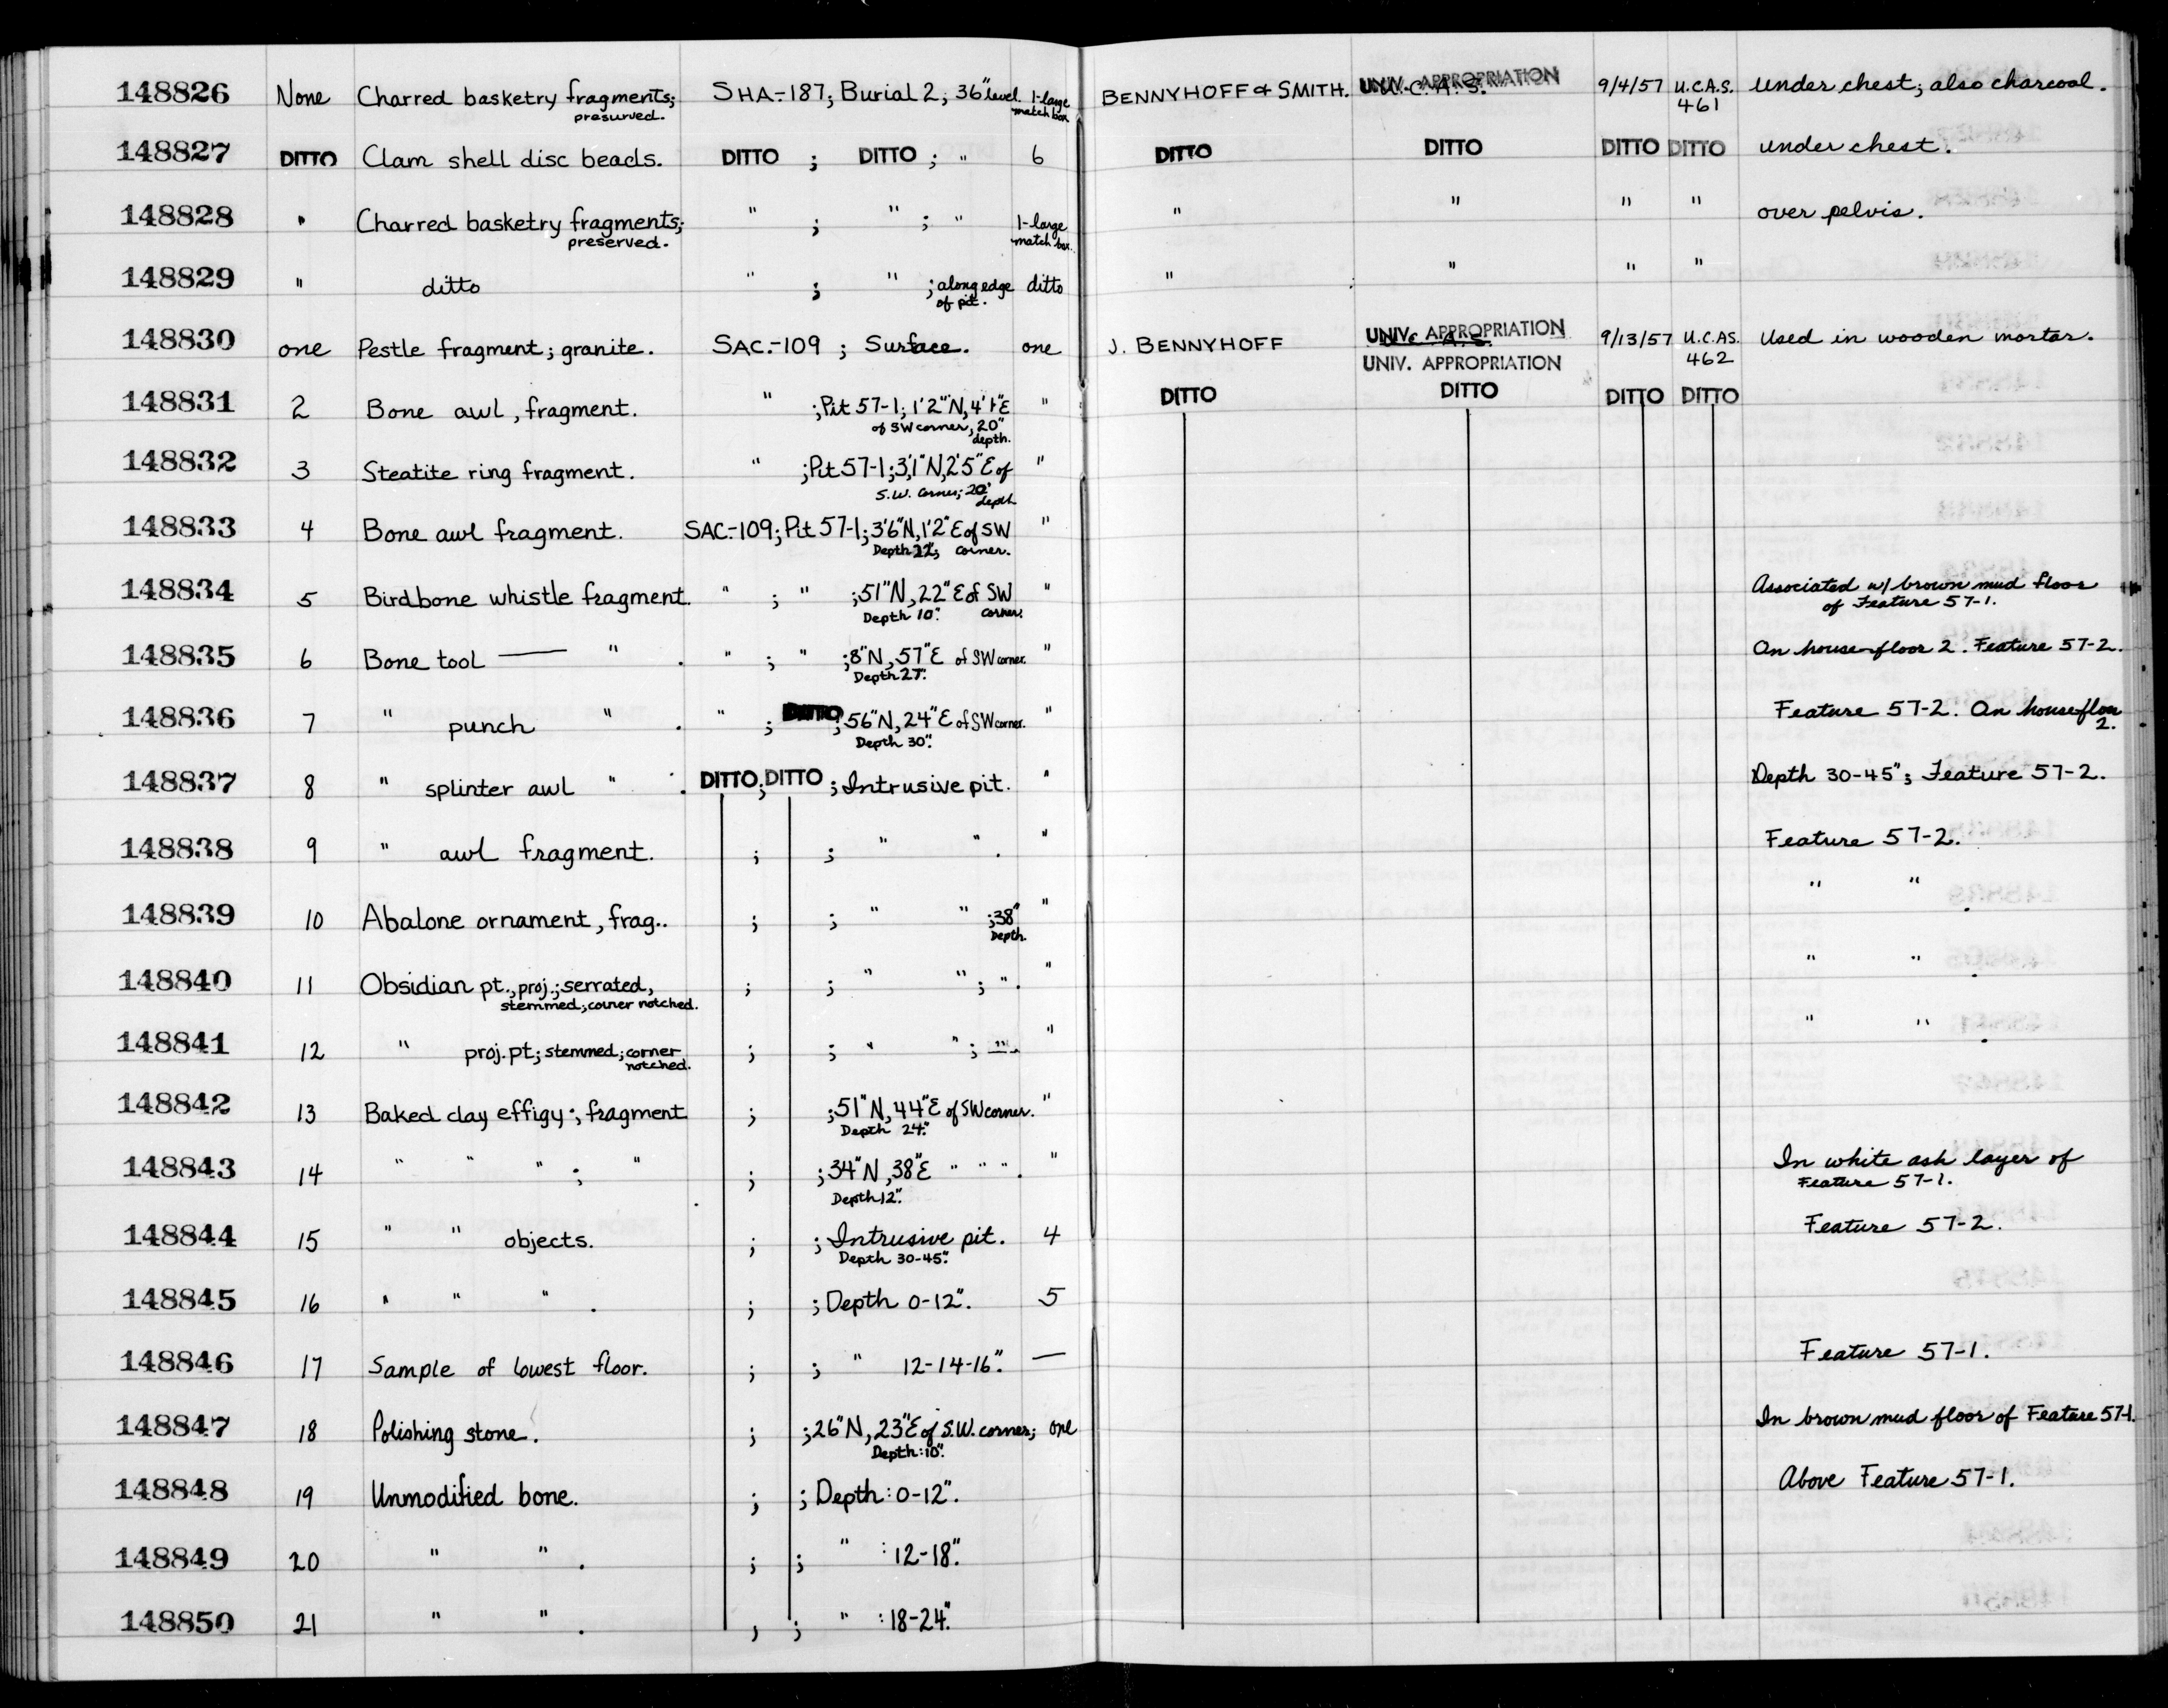 148826 None Charred basketry fragments; SHA-187; Burial 2; 36" level. 1-large BENNYHOFF & SMITH. UNIV. APPROPRIATION 9/4/57 U.C.A.S. under chest; also charcoal.
presurved. match box 461
148827 DITTO Clam shell disc beads. DITTO ; DITTO ; " 6 DITTO DITTO DITTO DITTO under chest.
148828 " Charred basketry fragments; " ; " ; " 1-large " " " " over pelvis.
preserved. match box.
148829 " ditto " ; " ; along edge ditto " " " "
of pit.
148830 one Pestle fragment; granite. SAC.-109 ; Surface. one J. BENNYHOFF UNIV. APPROPRIATION 9/13/57 U.C.AS. Used in wooden mortar.
UNIV. APPROPRIATION 462
148831 2 Bone awl, fragment. " ; Pit 57-1; 1'2"N, 4'1"E " DITTO DITTO DITTO DITTO
of SW corner, 20"
depth.
148832 3 Steatite ring fragment. " ; Pit 57-1; 3'1"N, 2'5"E of "
S.W. corner; 20"
depth
148833 4 Bone awl fragment. SAC.-109; Pit 57-1; 3'6"N, 1'2"E of SW "
Depth 22"; corner.
148834 5 Birdbone whistle fragment. " ; " ; 51"N, 22"E of SW " Associated w/ brown mud floor
Depth 10". corner. of Feature 57-1.
148835 6 Bone tool — " . " ; " ; 8"N, 57"E of SW corner. " On house floor 2. Feature 57-2.
Depth 27".
148836 7 " punch " . " ; DITTO ; 56"N, 24"E of SW corner. " Feature 57-2. On house floor
Depth 30". 2.
148837 8 " splinter awl " . DITTO; DITTO ; Intrusive pit. " Depth 30-45"; Feature 57-2.
148838 9 " awl fragment. ; ; " " . " Feature 57-2.
148839 10 Abalone ornament, frag.. ; ; " " ; 38" " " " .
Depth.
148840 11 Obsidian pt., proj.; serrated, ; ; " " ; " . " " " .
stemmed; corner notched.
148841 12 " proj. pt; stemmed; corner ; ; " " ; " . " " " .
notched.
148842 13 Baked clay effigy ; fragment ; ; 51"N, 44"E of SW corner. "
Depth 24".
148843 14 " " " ; " ; ; 34"N, 38"E " " " . " In white ash layer of
Depth 12". Feature 57-1.
148844 15 " " objects. ; ; Intrusive pit. 4 Feature 57-2.
Depth 30-45".
148845 16 " " " . ; ; Depth 0-12". 5
148846 17 Sample of lowest floor. ; ; " 12-14-16". — Feature 57-1.
148847 18 Polishing stone. ; ; 26"N, 23"E of S.W. corner; one In brown mud floor of Feature 57-1.
Depth: 10".
148848 19 Unmodified bone. ; ; Depth: 0-12". Above Feature 57-1.
148849 20 " " . ; ; " : 12-18".
148850 21 " " . ; ; " : 18-24".